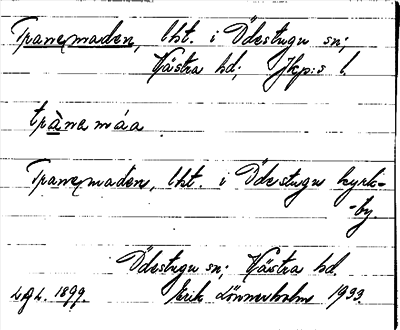 Tranemaden, lht. i Ödestugu sn;
Västra hd; Jkp:s l.
trànemáa
Tranemaden, lht. i Ödestugu kyrk-
-by.
Ödestugu sn; Västra hd.
L.G.L. 1899. Erik Lönnerholm 1933.